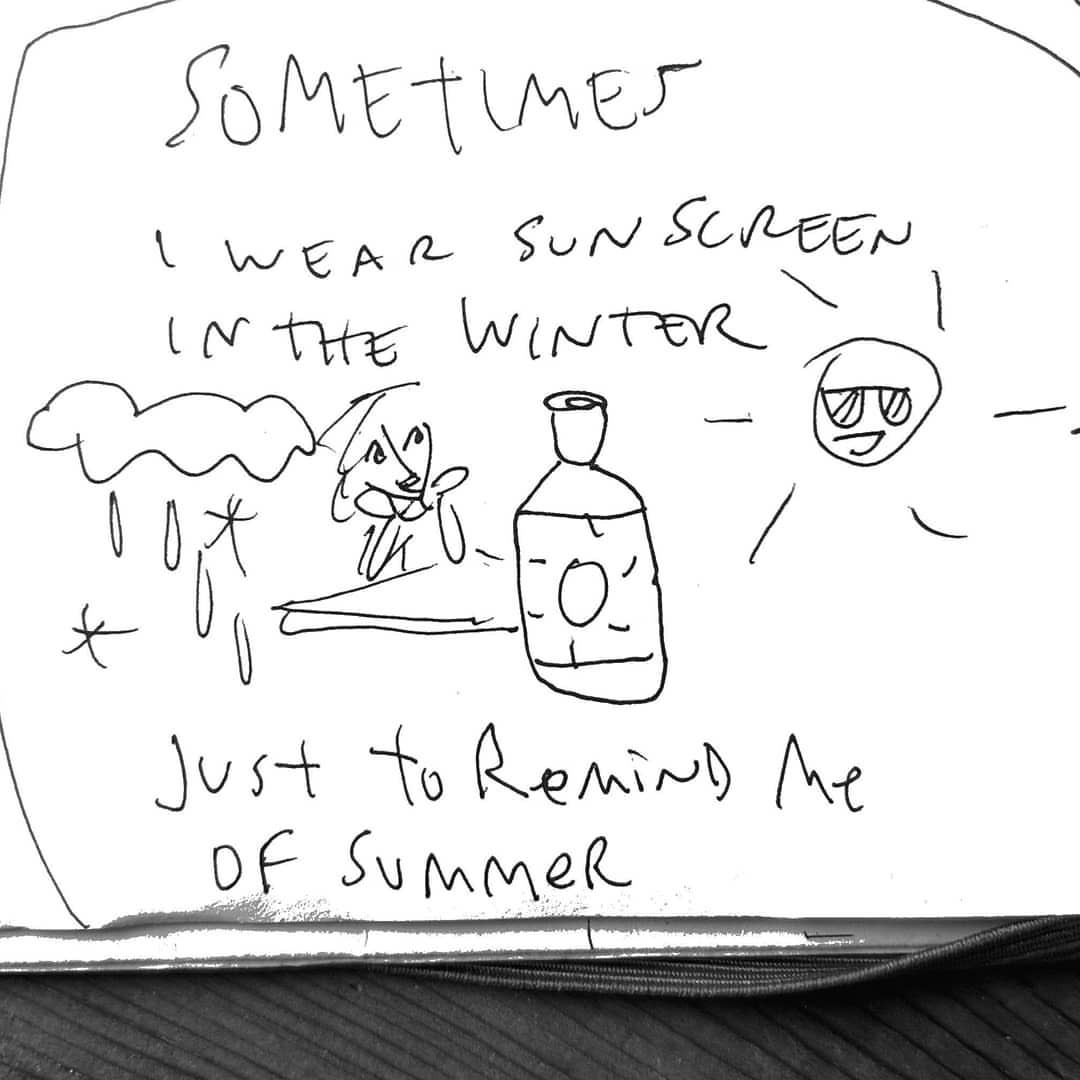 SOMETIMES
I WEAR SUNSCREEN
IN THE WINTER
JUST TO REMIND ME
OF SUMMER